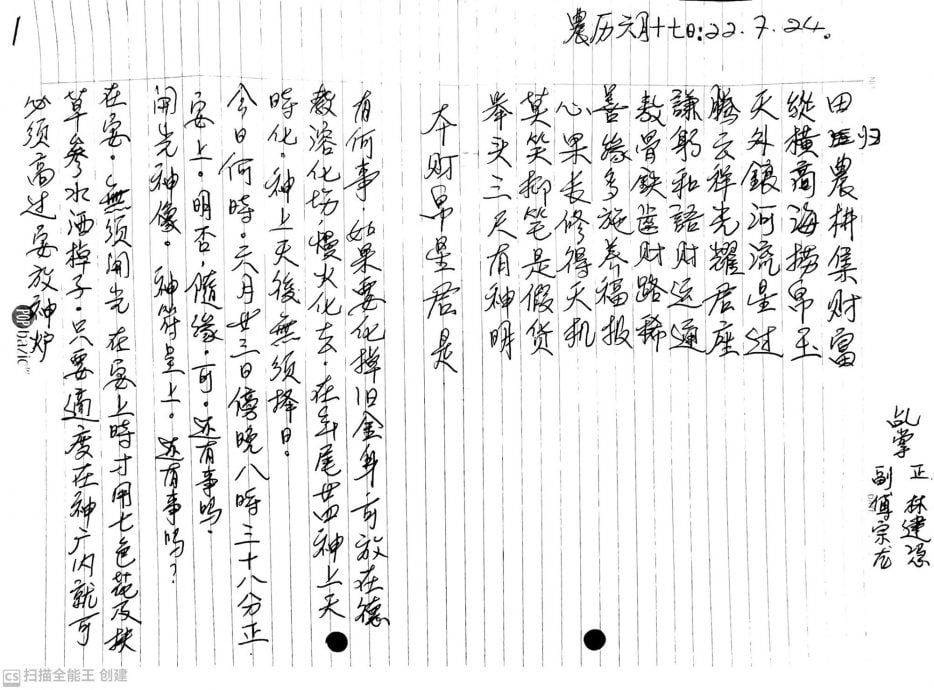 1
農历六月十七日:22.7.24。
乩掌 正 林建
副 傅宗龙
田归農耕集财富
縱横商海捞帛玉
天外銀河流星过
腾云祥光耀君座
謙躬和語财运通
敖骨鉄齿财路稀
善缘多施养福报
心果长修得天机
莫笑抑笔是假货
举头三尺有神明
本财帛星君是
有何事,如果要化掉旧金身可放在德
教溶化场慢火化去,在年尾廿四神上天
時化,神上天後無须择日。
今日何時,六月廿三日傍晚八時三十八分正
安上。明否,隨缘,可。还有事吗。
開光神像。神符呈上。还有事吗?
在安。無须開光在安上時才用七色花及抉
草参水洒掉子。只要适度在神广内就可
必须高过安放神炉
POP bazic
CS 扫描全能王 创建